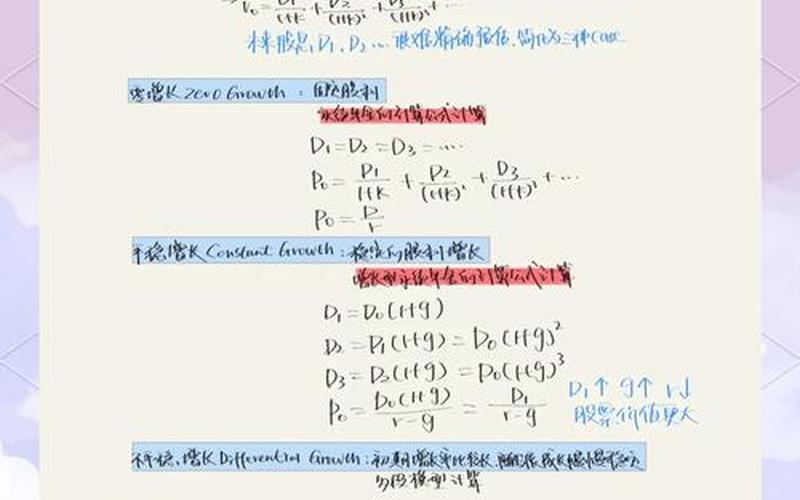 V₀ = D₁/(1+k + D₂/(1+k)² + D₃/(1+k)³ + ...
未来股息 D₁、D₂ ... 很难精确预估，简化为三种case
零增长 Zero Growth：固定股利
永续年金的计算公式计算
D₁=D₂=D₃=...
P₀ = D₁/1+k + D₂/(1+k)² + D₃/(1+r)³ + ...
P₀ = D/r
平稳增长 Constant Growth：稳定的股利增长
增长型永续年金的计算公式计算
D₁ = D₀(1+g)
D₂ = D₁(1+g) = D₀(1+g)²
D₃ = D₂(1+g) = D₀(1+g)³
P₀ = D₀(1+g)/r-g = D₁/r-g
D₁↑ g↑ r↓
股票价值更大
不平稳增长 Differential Growth：初期增长率比较长
分段模型计算